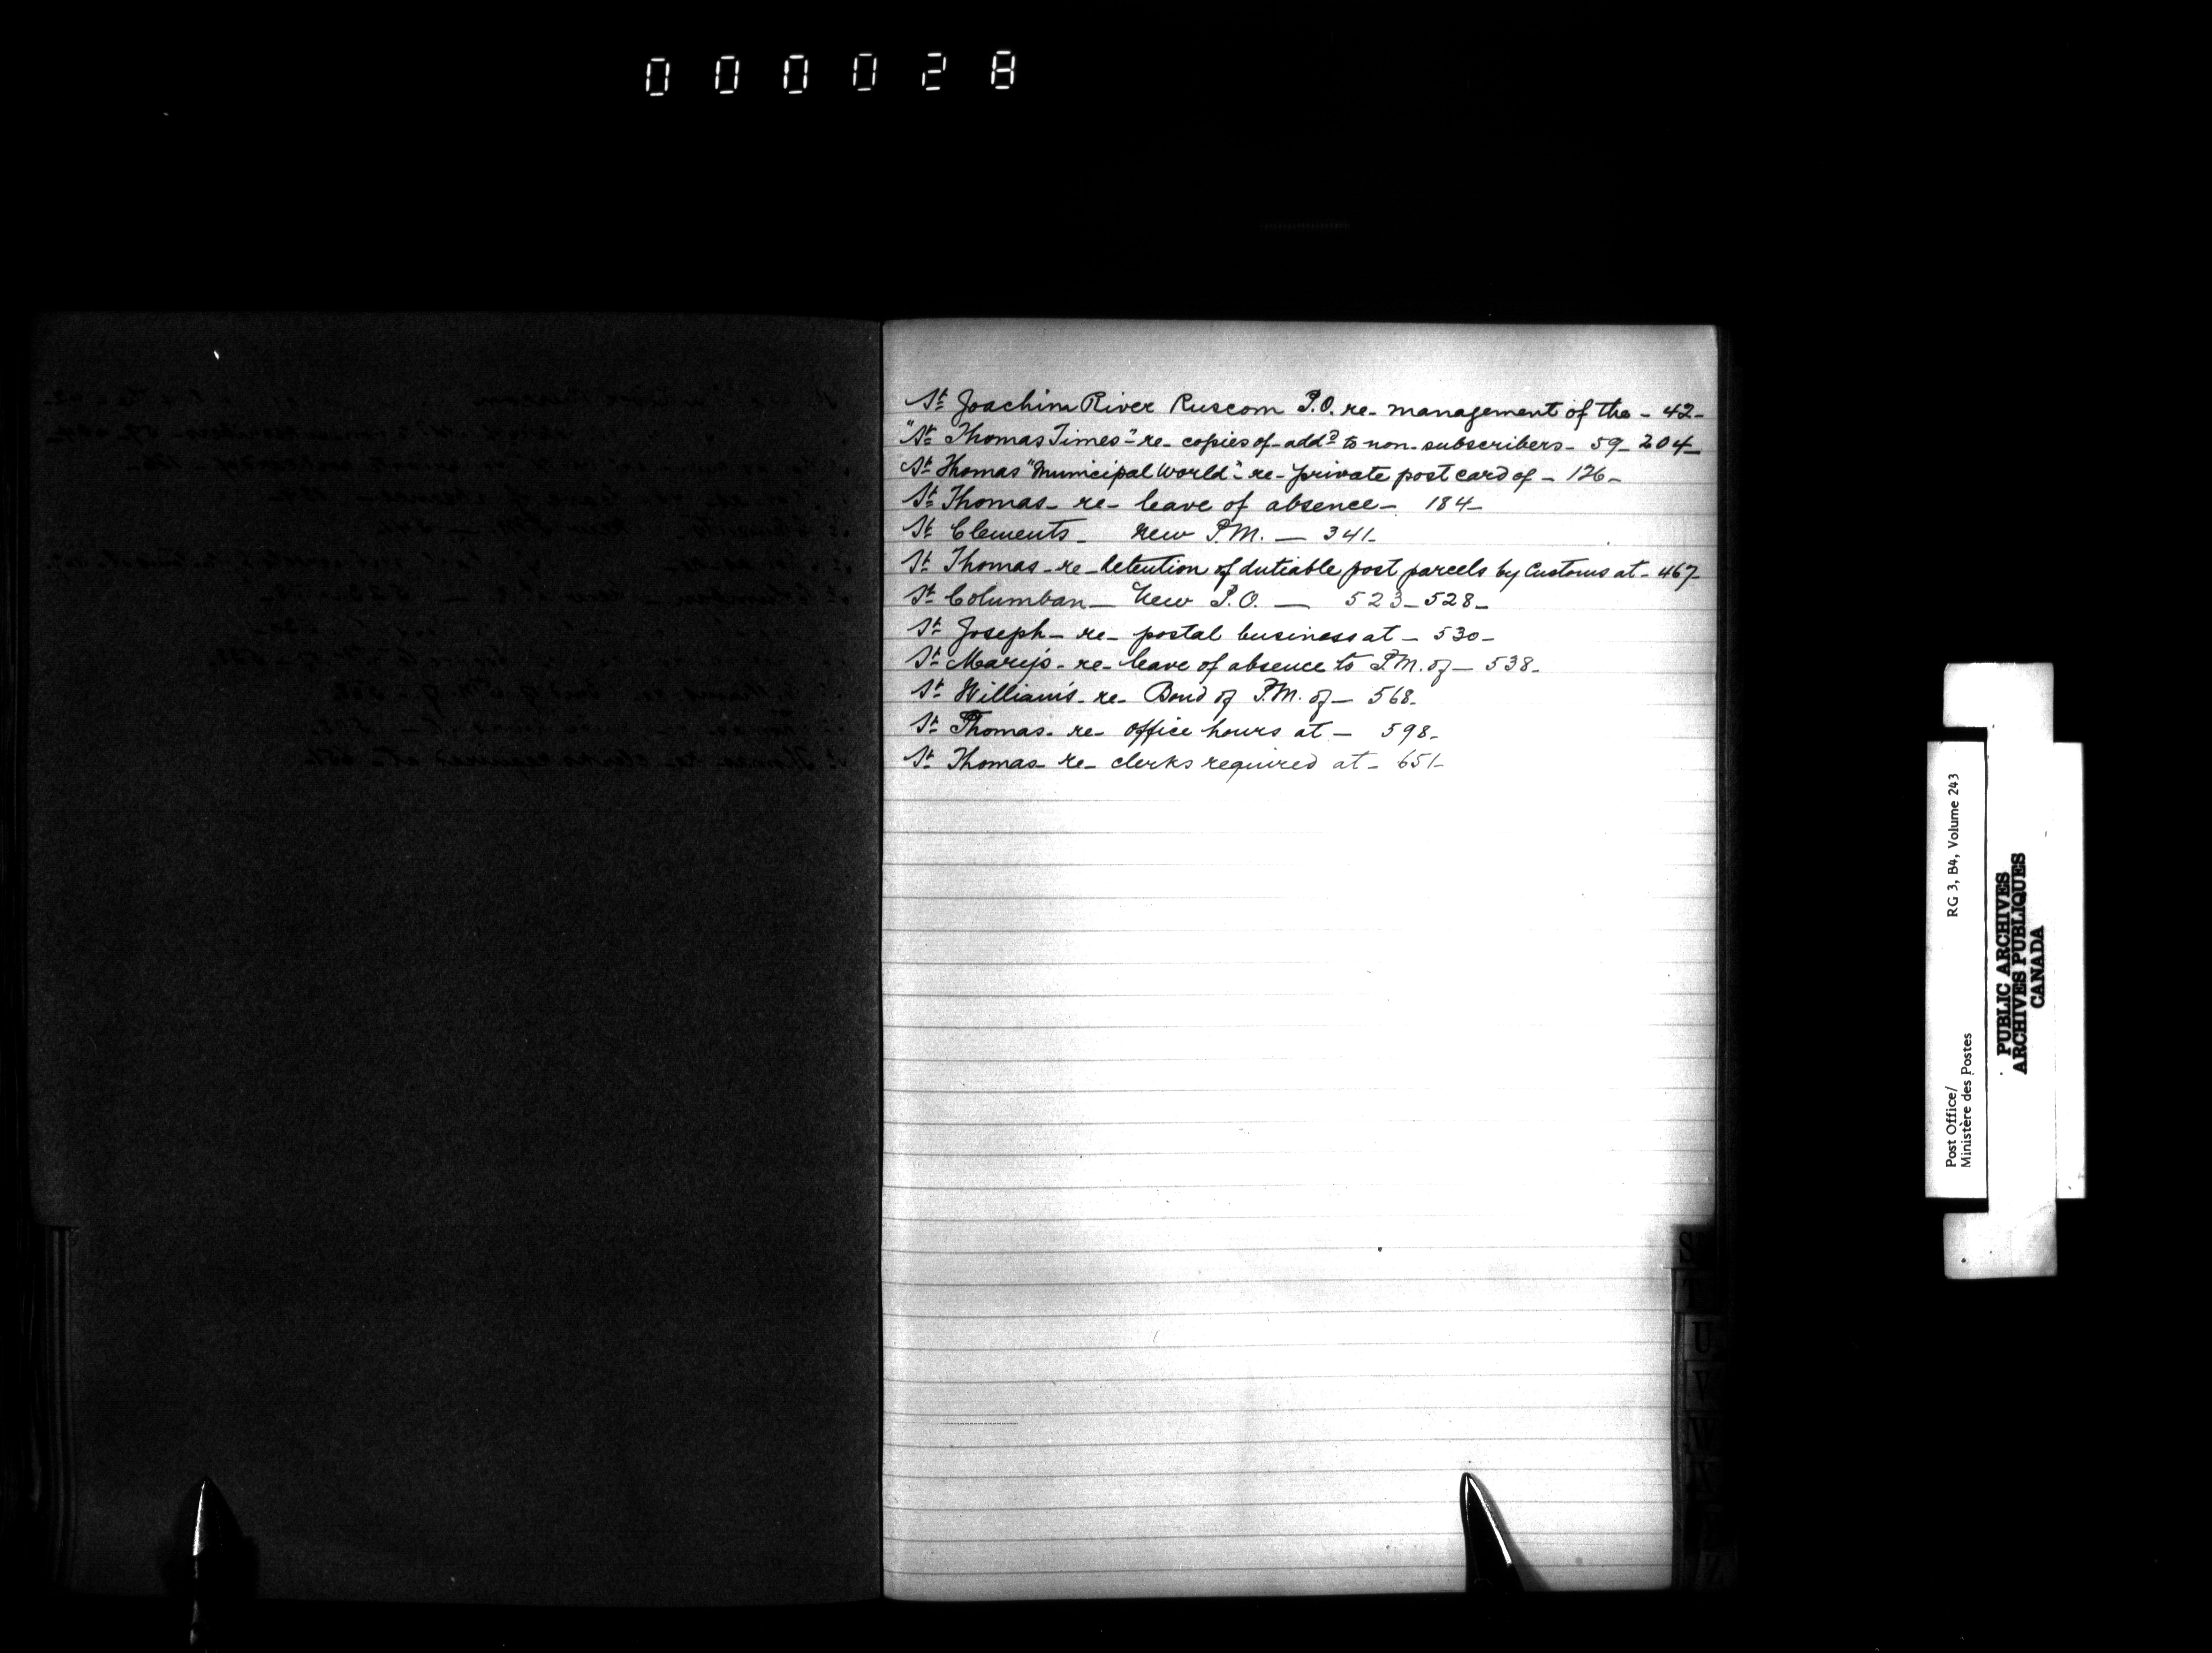 000028
St Joachim River Ruscom P.O. re- management of the - 42-
"St Thomas Times"- re- copies of- addd to non-subscribers- 59- 204-
St Thomas "Municipal World"- re- private post card of - 126-
St Thomas- re- leave of absence- 184-
St Clements- New P.M. - 341-
St Thomas- re- detention of dutiable post parcels by Customs at- 467-
St Columban- New P.O. - 523-528-
St Joseph- re- postal business at- 530-
St Mary's- re- leave of absence to P.M. of- 538-
St William's- re- Bond of P.M. of- 568-
St Thomas- re- office hours at- 598-
St Thomas- re- clerks required at- 651-
S
T
U
V
W
X
Z
Post Office/ RG 3, B4, Volume 243
Ministère des Postes
PUBLIC ARCHIVES
ARCHIVES PUBLIQUES
CANADA